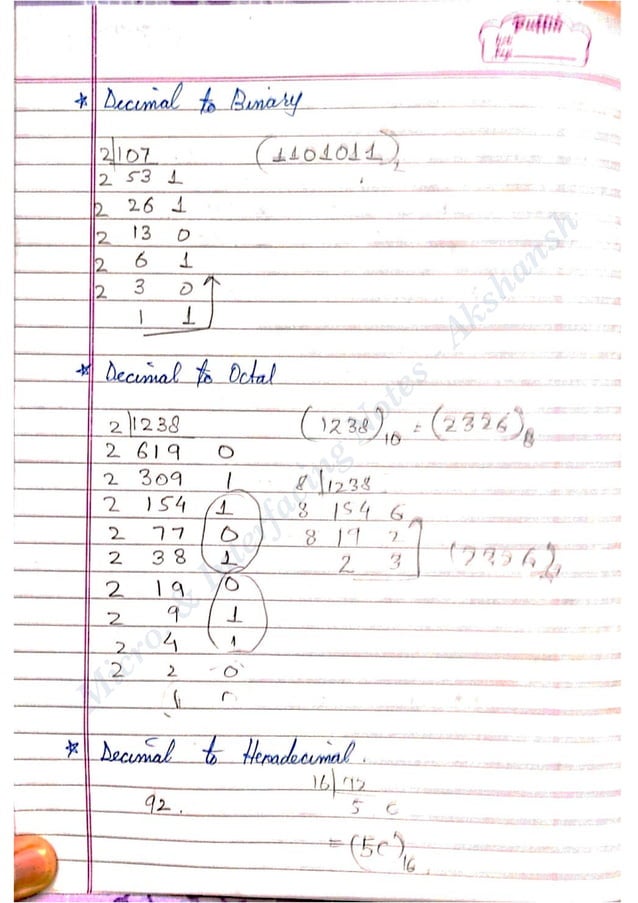 * Decimal to Binary
2 107 (1101011)2
2 53 1
2 26 1
2 13 0
2 6 1
2 3 0
1 1
* Decimal to Octal
2 1238 (1238)10 = (2326)8
2 619 0
2 309 1 8 1238
2 154 1 8 154 6
2 77 0 8 19 2
2 38 1 2 3 (2326)8
2 19 0
2 9 1
2 4 1
2 2 0
1 0
* Decimal to Hexadecimal.
16 92
92. 5 C
= (5C)16
Micro & Interfacing Notes - Akshansh